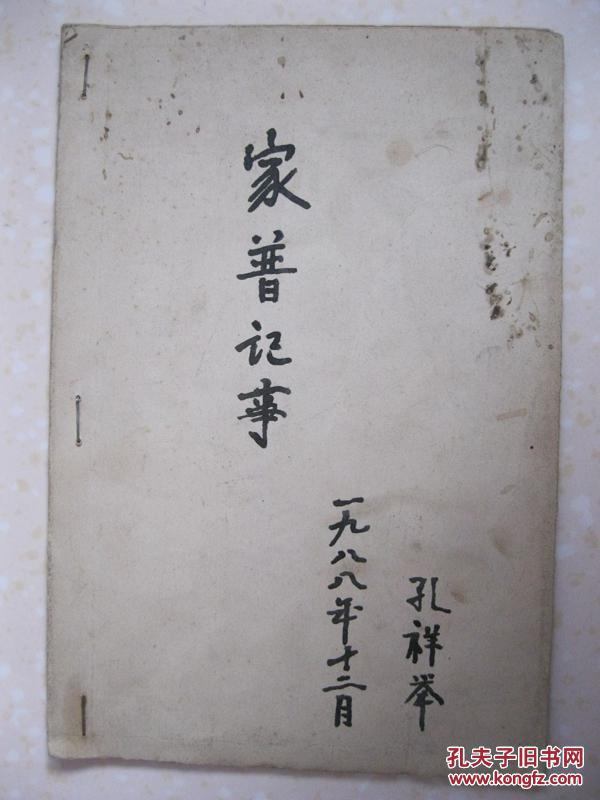 家普记事
一九八八年十二月
孔祥举
孔夫子旧书网
www.kongfz.com